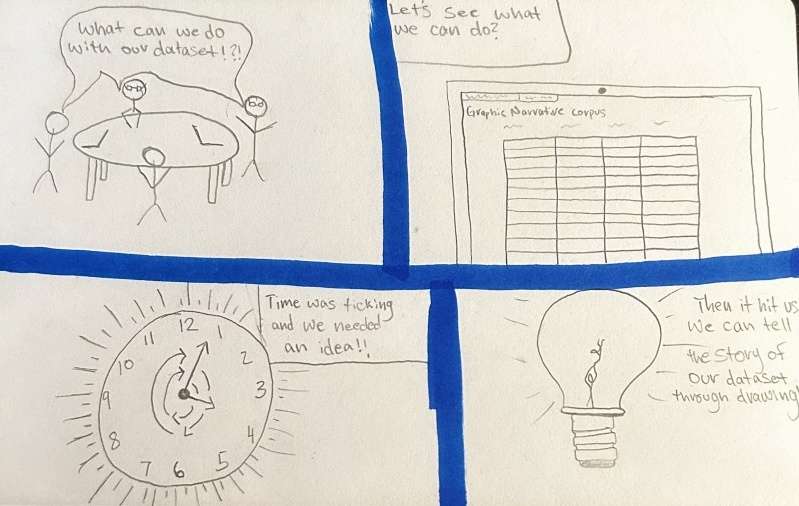 What can we do
with our dataset!?!
Let's see what
we can do?
Graphic Narrative corpus
Time was ticking
and we needed
an idea!!
12
1
2
3
4
5
6
7
8
9
10
11
Then it hit us
we can tell
the story of
our dataset
through drawing!